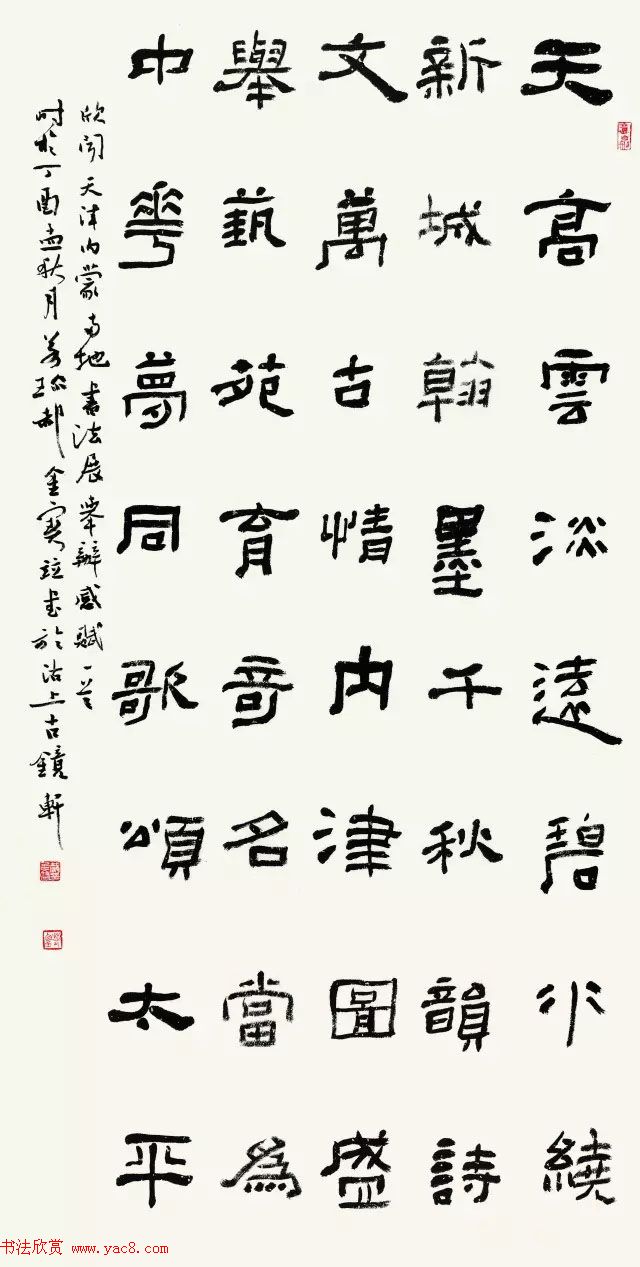 天高雲淡遠碧水繞
新城翰墨千秋韻詩
文萬古情内津圖盛
舉藝苑育奇名當為
中華夢同歌頌太平
欣闻天津内蒙两地書法展舉辦感賦一首
时於丁酉孟秋月郝金寶並書於沽上古鏡軒
书法欣赏 www.yac8.com